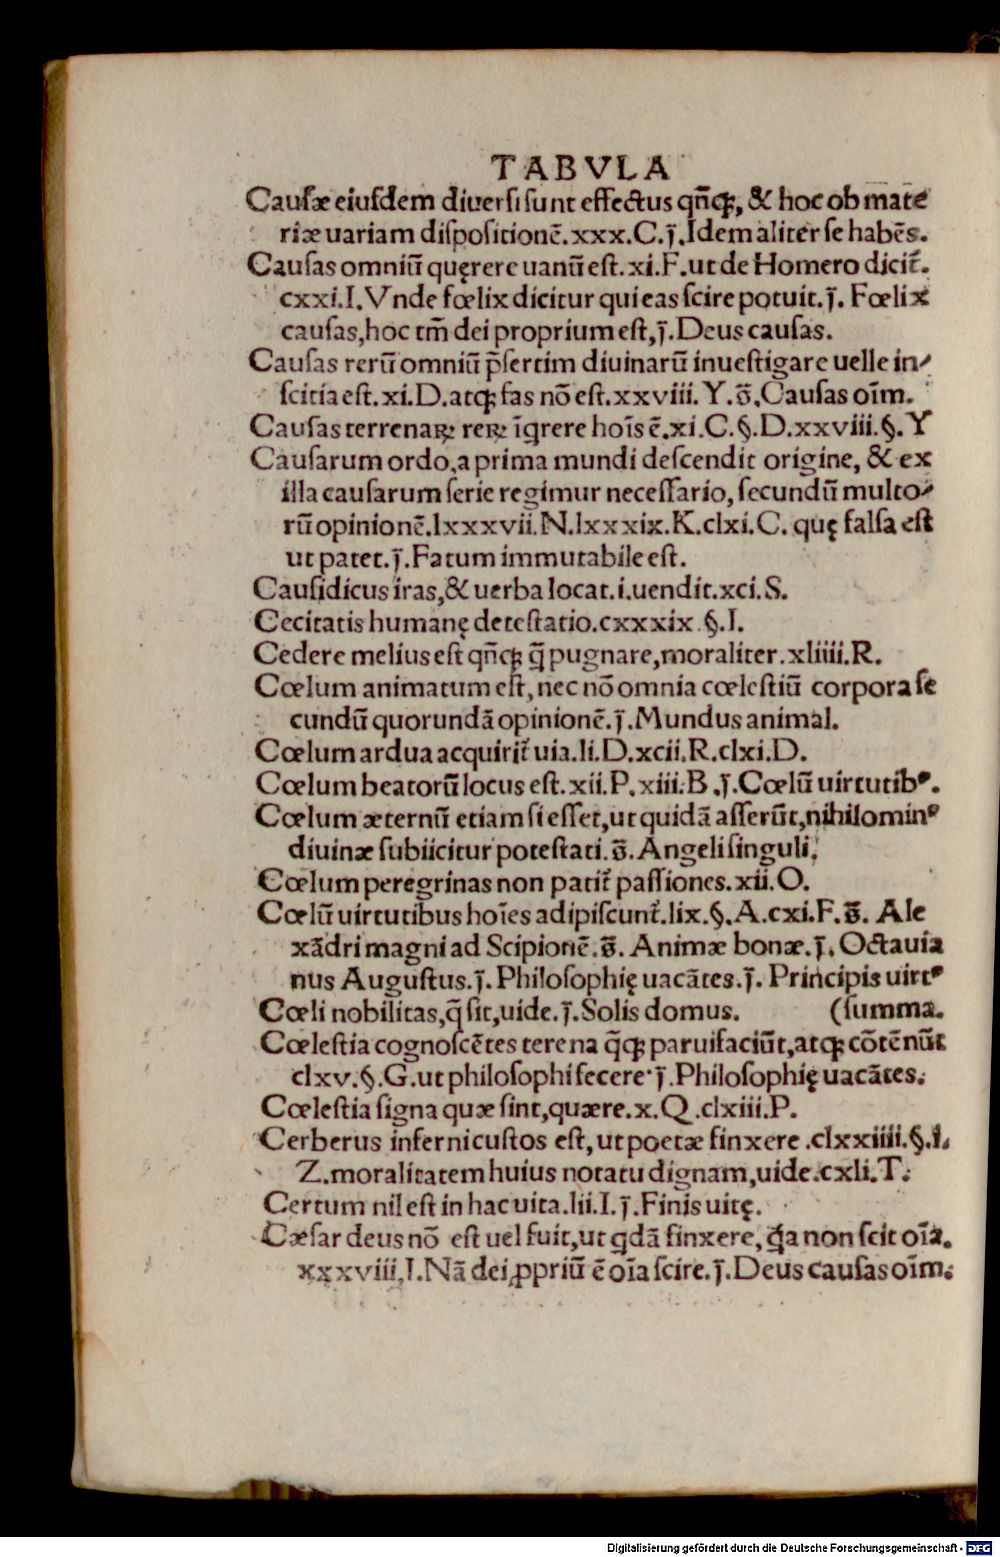 TABVLA
Cauſæ eiuſdem diuerſi ſunt effectus qñcꝗ, & hoc ob mate
riæ uariam diſpoſitionē.xxx.C.j̄.Idem aliter ſe habēs.
Cauſas omniū quęrere uanū eſt.xi.F.ut de Homero dicit᷑.
cxxi.I.Vnde fœlix dicitur qui eas ſcire potuit.j̄. Fœlix
cauſas,hoc tm̄ dei proprium eſt,j̄.Deus cauſas.
Cauſas rerū omniū p̄ſertim diuinarū inueſtigare uelle in⸗
ſcitia eſt.xi.D.atqꝫ fas nō eſt.xxviii.Y.s̄.Cauſas oīm.
Cauſas terrenaꝝ reꝝ īqrere hoīs ē.xi.C.§.D.xxviii.§.Y
Cauſarum ordo,a prima mundi deſcendit origine, & ex
illa cauſarum ſerie regimur neceſſario, ſecundū multo⸗
rū opinionē.lxxxvii.N.lxxxix.K.clxi.C. quę falſa eſt
ut patet.j̄.Fatum immutabile eſt.
Cauſidicus iras,& uerba locat.i.uendit.xci.S.
Cecitatis humanę deteſtatio.cxxxix.§.I.
Cedere melius eſt qñqꝫ q̄ pugnare,moraliter.xliiii.R.
Cœlum animatum eſt, nec nō omnia cœleſtiū corpora ſe
cundū quorundā opinionē.j̄.Mundus animal.
Cœlum ardua acquirit᷑ uia.li.D.xcii.R.clxi.D.
Cœlum beatorū locus eſt.xii.P.xiii.B.j̄.Cœlū uirtutibꝰ.
Cœlum æternū etiam ſi eſſet,ut quidā aſſerūt,nihilominꝰ
diuinæ ſubiicitur poteſtati.s̄.Angeli ſinguli.
Cœlum peregrinas non patit᷑ paſſiones.xii.O.
Cœlū uirtutibus hoīes adipiſcunt᷑.lix.§.A.cxi.F.s̄. Ale
xādri magni ad Scipionē.s̄. Animæ bonæ.j̄. Octauia
nus Auguſtus.j̄. Philoſophię uacātes.j̄. Principis uirtꝰ
Cœli nobilitas,q̄ ſit,uide.j̄.Solis domus. (ſumma.
Cœleſtia cognoſcētes terena q̄qꝫ paruifaciūt,atqꝫ cōtēnūt
clxv.§.G.ut philoſophi fecere.j̄.Philoſophię uacātes.
Cœleſtia ſigna quæ ſint,quære.x.Q.clxiii.P.
Cerberus inferni cuſtos eſt,ut poetæ finxere.clxxiiii.§.i.
Z.moralitatem huius notatu dignam,uide.cxli.T.
Certum nil eſt in hac uita.lii.I.j̄.Finis uitę.
Cæſar deus nō eſt uel fuit,ut qdā finxere, q̄a non ſcit oīa.
xxxviii.I.Nā dei ꝓpriū ē oīa ſcire.j̄.Deus cauſas oīm.
Digitalisierung gefördert durch die Deutsche Forschungsgemeinschaft - DFG